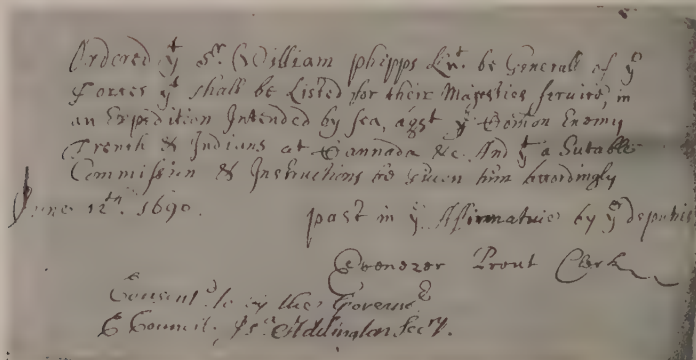 Ordered yt Sr. William Phipps Knt. be Generall of ye
Forces yt shall be Listed for their Majesties service, in
an Expedition Intended by sea, agst ye Comon Enemy
French & Indians at Cannada &c. And yt a Sutable
Commission & Instructions be given him accordingly
June 12th. 1690.
past in ye Affirmative by ye deputies
Ebenezer Prout Clerk
Consented to by the Governr
& Council. Jsa. Addington Secry.